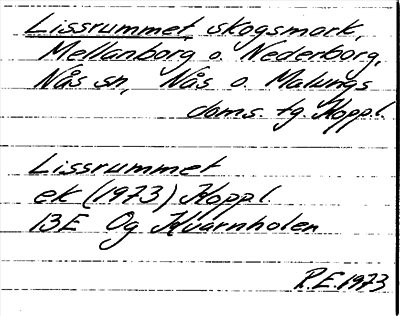 Lissrummet, skogsmark,
Mellanborg o. Nederborg,
Nås sn, Nås o. Malungs
doms. tg. Koppl.
Lissrummet
ek (1973) Koppl.
13E Og Kvarnholen
R.E. 1973